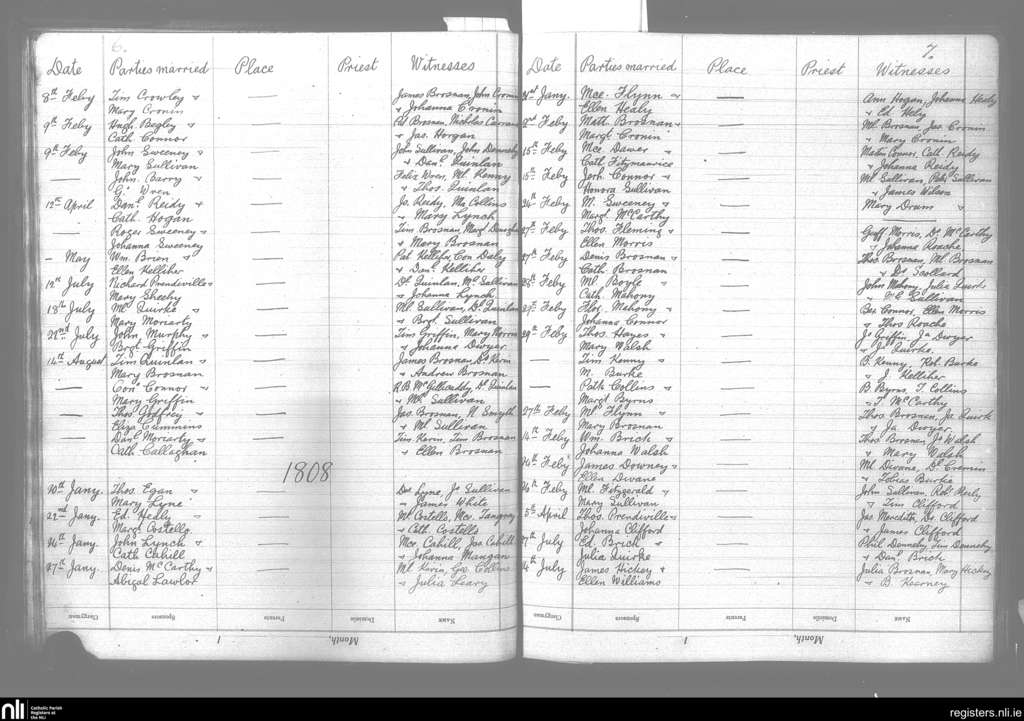 6.
Date Parties married Place Priest Witnesses
8th Feby Tim Crowley & — James Brosnan, John Cronin
Mary Cronin & Johanna Cronin
9th Feby Hugh Begley & — Pat Brosnan, Nicholas
Cath. Connor & Jas. Horgan
9th Feby John Sweeney & — John Sullivan, John Donnelly
Mary Sullivan & Danl Quinlan
— John Barry & — Felix Wren, Ml. Kenny
G. Wren & Thos. Quinlan
12th April Danl. Reidy & — Jo. Reidy, My Collins
Cath. Hogan & Mary Lynch
— Roger Sweeney & — Tim Brosnan, Margt Donoghue
Johanna Sweeney & Mary Brosnan
— May Wm. Brien & — Pat Kelliher, Con Daly
Ellen Kelliher & Danl. Kelliher
12th July Richard Prendeville & — Dl. Quinlan, Mc. Sullivan
Mary Sheehy & Johanna Lynch
18th July Ml. Quirke & — Ml. Sullivan, Dl. Quinlan
Mary Moriarty & Brgt. Sullivan
22nd July John Murphy & — Tim Griffin, Mary
Brgt. Griffin & Johanna Dwyer
14th August Tim Quinlan & — James Brosnan, Dl. Kerin
Mary Brosnan & Andrew Brosnan
— Con. Connor & — R.B. McGillicuddy, Dl. Quinlan
Mary Griffin & Ml. Sullivan
— Thos. Godfrey & — Jas. Brosnan, N. Smyth
Eliza Cummins & Ml. Sullivan
— Danl. Moriarty & — Tim Kerin, Tim Brosnan
Cath. Callaghan & Ellen Brosnan
1808
20th Jany. Thos. Egan & — Dan Lyne, Jo Sullivan
Mary Lyne James White
22nd Jany. Ed. Healy & — Ml. Costello, Mce. Tangney
Margt. Costello & Cath. Costello
24th Jany. John Lynch & — Mce. Cahill, Jas. Cahill
Cath. Cahill & Johanna Mangan
27th Jany. Denis McCarthy & — Ml. Kerin, Geo. Collins
Abigal Lawlor & Julia Leary
7.
Date Parties married Place Priest Witnesses
Jany. Mce. Flynn & — Ann Hogan, Johanna Healy
Ellen Healy & Ed. Hely
2nd Feby Matt Brosnan & — Ml. Brosnan, Jas. Cronin
Margt. Cronin & Mary Cronin
15th Feby Mce Dawer & — Martin Connor, Cath. Reidy
Cath. Fitzmaurice & Johanna Reidy
15th Feby Jerh. Connor & — Ml. Sullivan, Patk. Sullivan
Honora Sullivan & James Wilson
24th Feby M. Sweeney & — Mary Drum &
Margt. McCarthy —
27th Feby Thos Fleming & — Geoff Morris, Dl. McCarthy
Ellen Morris & Johanna Roache
27th Feby Denis Brosnan & — Thos. Brosnan, Ml. Brosnan
Cath. Brosnan & Ds. Scollard
28th Feby Ml. Boyle & — John Mahony, Julia Quirk
Cath. Mahony & G. Sullivan
29th Feby Flor. Mahony & — Bar. Connor, Ellen Morris
Johanna Connor & Thos Roache
29th Feby Thos. Hayes & — Jo Griffin, Ja. Dwyer
Mary Walsh & Quirke.
— Tim Kenny & — B. Kenny, Rob. Burke
M. Burke & J. Kelliher
— Patk Collins & — B. Byrns, T. Collins
Margt Byrns & T. McCarthy
27th Feby Ml. Flynn & — Thos. Brosnan, Ja. Quirk
Mary Brosnan & Ja. Dwyer
14th Feby Wm. Brick & — Thos. Brosnan, Jo Walsh
Johanna Walsh & Mary Walsh
14th Feby James Downey & — Ml. Divane, Dl. Cremin
Ellen Divane & Tobias Burke
26th Feby Ml. Fitzgerald & — John Sullivan, Rob.
Mary Sullivan & Tim Clifford
5th April Thos. Prendeville & — Jas. Meredith, Dl. Clifford
Johanna Clifford & James Clifford
7th July Ed. Brick & — Phil. Donnelly, Tim Donnelly
Julia Quirke & Danl. Brick
14th July James Hickey & — Julia Brosnan, Mary Hickey
Ellen Williams & B. Kearney
Clergyman Sponsors Parents Domicile Name
Month, 1
Clergyman Sponsors Parents Domicile Name
Month, 1
nli Catholic Parish
Registers at
the NLI
registers.nli.ie